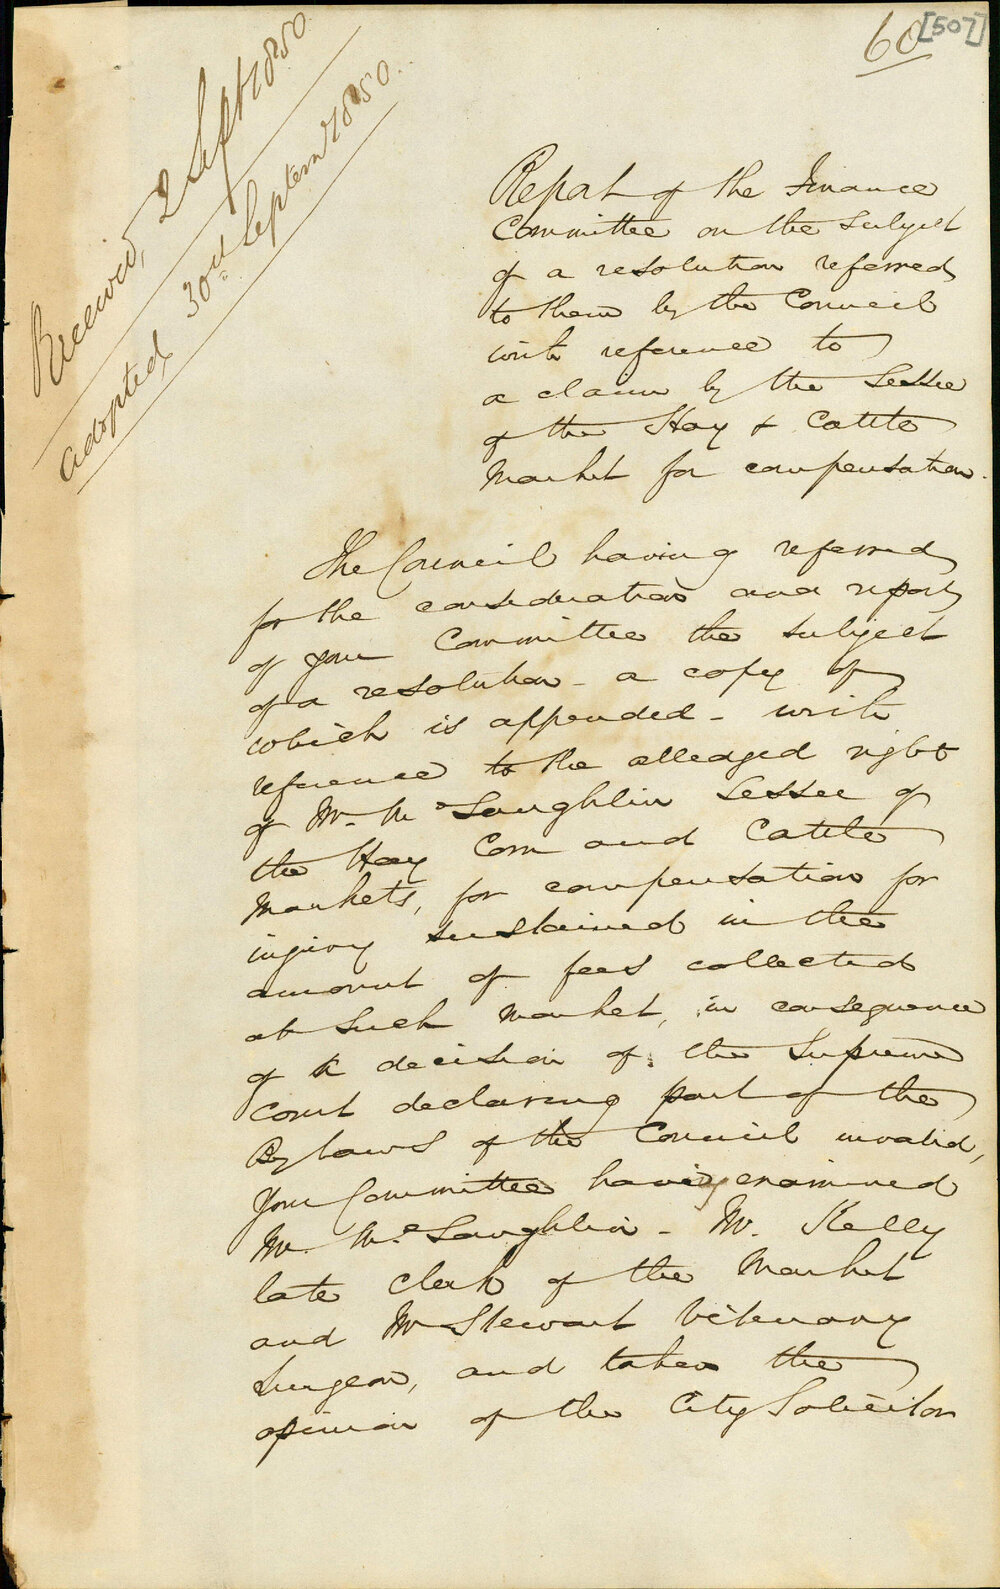 60 [507]
Received, 2 Sept 1850
adopted 30th September 1850
Report of the Finance
Committee on the subject
of a resolution referred
to them by the Council
with reference to
a claim by the Lessee
of the Hay & Cattle
Market for compensation.
The Council having referred
for the consideration and report
of your Committee the subject
of a resolution - a copy of
which is appended - with
reference to the alledged right
of Mr. McLaughlin Lessee of
the Hay Corn and Cattle
Markets, for compensation for
injury sustained in the
amount of fees collected
at such Market, in consequence
of a decision of the Supreme
Court declaring part of the
By laws of the Council invalid,
your Committee having examined
Mr. McLaughlin - Mr. Kelly
late Clerk of the Market
and Mr Stewart Veterinary
Surgeon, and taken the
opinion of the City Solicitor